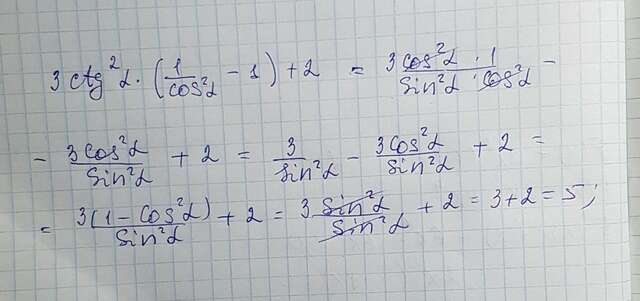 3 ctg²α · (1/cos²α − 1) + 2 = 3 cos²α · 1/sin²α · cos²α −
− 3cos²α/sin²α + 2 = 3/sin²α − 3cos²α/sin²α + 2 =
= 3(1 − cos²α)/sin²α + 2 = 3 sin²α/sin²α + 2 = 3 + 2 = 5;